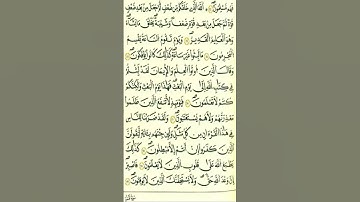 فَهُم مُّسْلِمُونَ ۞ ٱللَّهُ ٱلَّذِى خَلَقَكُم مِّن ضَعْفٍ ثُمَّ جَعَلَ مِنۢ بَعْدِ ضَعْفٍ
قُوَّةً ثُمَّ جَعَلَ مِنۢ بَعْدِ قُوَّةٍ ضَعْفًا وَشَيْبَةً يَخْلُقُ مَا يَشَآءُ
وَهُوَ ٱلْعَلِيمُ ٱلْقَدِيرُ وَيَوْمَ تَقُومُ ٱلسَّاعَةُ يُقْسِمُ
ٱلْمُجْرِمُونَ مَا لَبِثُوا۟ غَيْرَ سَاعَةٍ كَذَٰلِكَ كَانُوا۟ يُؤْفَكُونَ
وَقَالَ ٱلَّذِينَ أُوتُوا۟ ٱلْعِلْمَ وَٱلْإِيمَٰنَ لَقَدْ لَبِثْتُمْ
فِى كِتَٰبِ ٱللَّهِ إِلَىٰ يَوْمِ ٱلْبَعْثِ فَهَٰذَا يَوْمُ ٱلْبَعْثِ وَلَٰكِنَّكُمْ
كُنتُمْ لَا تَعْلَمُونَ فَيَوْمَئِذٍ لَّا يَنفَعُ ٱلَّذِينَ ظَلَمُوا۟
مَعْذِرَتُهُمْ وَلَا هُمْ يُسْتَعْتَبُونَ وَلَقَدْ ضَرَبْنَا لِلنَّاسِ
فِى هَٰذَا ٱلْقُرْءَانِ مِن كُلِّ مَثَلٍ وَلَئِن جِئْتَهُم بِـَٔايَةٍ لَّيَقُولَنَّ
ٱلَّذِينَ كَفَرُوٓا۟ إِنْ أَنتُمْ إِلَّا مُبْطِلُونَ كَذَٰلِكَ
يَطْبَعُ ٱللَّهُ عَلَىٰ قُلُوبِ ٱلَّذِينَ لَا يَعْلَمُونَ فَٱصْبِرْ
إِنَّ وَعْدَ ٱللَّهِ حَقٌّ وَلَا يَسْتَخِفَّنَّكَ ٱلَّذِينَ لَا يُوقِنُونَ